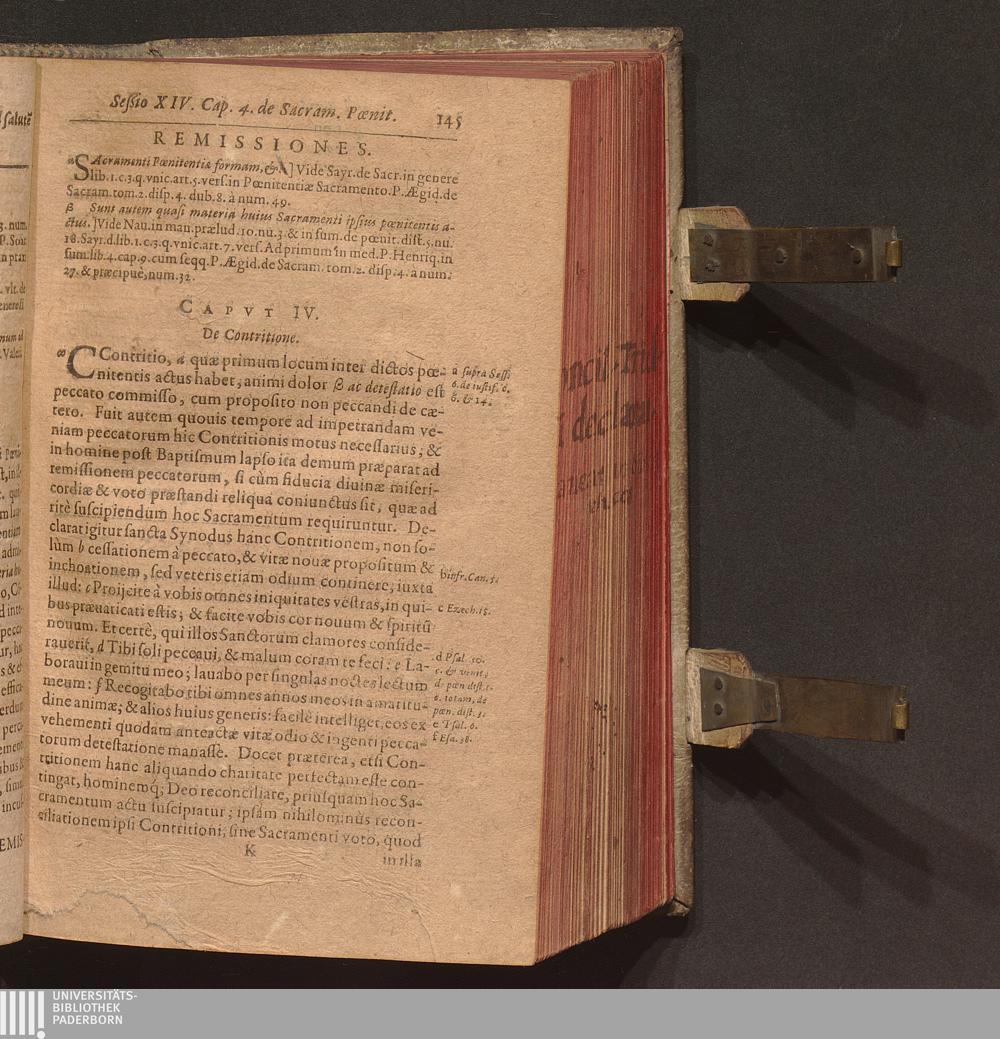 Sessio XIV. Cap. 4. de Sacram. Pœnit. 145
REMISSIONES.
α SAcramenti Pœnitentiæ formam, &c.] Vide Sayr. de Sacr. in genere
lib. 1. c. 3. q. vnic. art. 5. vers. in Pœnitentiæ Sacramento. P. Ægid. de
Sacram. tom. 2. disp. 4. dub. 8. à num. 49.
β Sunt autem quasi materia huius Sacramenti ipsius pœnitentis a-
ctus.] Vide Nau. in man. prælud. 10. nu. 3. & in sum. de pœnit. dist. 5. nu.
18. Sayr. d. lib. 1. c. 3. q. vnic. art. 7. vers. Ad primum in med. P. Henriq. in
sum. lib. 4. cap. 9. cum seqq. P. Ægid. de Sacram. tom. 2. disp. 4. à num.
27. & præcipuè, num. 32.
CAPVT IV.
De Contritione.
COntritio, a quæ primum locum inter dictos pœ-
nitentis actus habet, animi dolor β ac detestatio est
peccato commisso, cum proposito non peccandi de cæ-
tero. Fuit autem quouis tempore ad impetrandam ve-
niam peccatorum hic Contritionis motus necessarius; &
in homine post Baptismum lapso ita demum præparat ad
remissionem peccatorum, si cùm fiducia diuinæ miseri-
cordiæ & voto præstandi reliqua coniunctus sit, quæ ad
ritè suscipiendum hoc Sacramentum requiruntur. De-
clarat igitur sancta Synodus hanc Contritionem, non so-
lùm b cessationem à peccato, & vitæ nouæ propositum &
inchoationem, sed veteris etiam odium continere, iuxta
illud: c Proijcite à vobis omnes iniquitates vestras, in qui-
bus præuaricati estis; & facite vobis cor nouum & spiritũ
nouum. Et certè, qui illos Sanctorum clamores conside-
rauerit, d Tibi soli peccaui, & malum coram te feci: e La-
boraui in gemitu meo; lauabo per singulas noctes lectum
meum: f Recogitabo tibi omnes annos meos in amaritu-
dine animæ; & alios huius generis: facilè intelliget, eos ex
vehementi quodam anteactæ vitæ odio & ingenti pecca-
torum detestatione manasse. Docet præterea, etsi Con-
tritionem hanc aliquando charitate perfectam esse con-
tingat, hominemq́; Deo reconciliare, priusquam hoc Sa-
cramentum actu suscipiatur; ipsam nihilominùs recon-
ciliationem ipsi Contritioni, sine Sacramenti voto, quod
K in illa
a supra Sess.
6. de iustif. c.
6. & 14.
b infr. Can. 5.
c Ezech. 18.
d Psal. 50.
e Psal. 6.
f Esa. 38.
UNIVERSITÄTS-
BIBLIOTHEK
PADERBORN